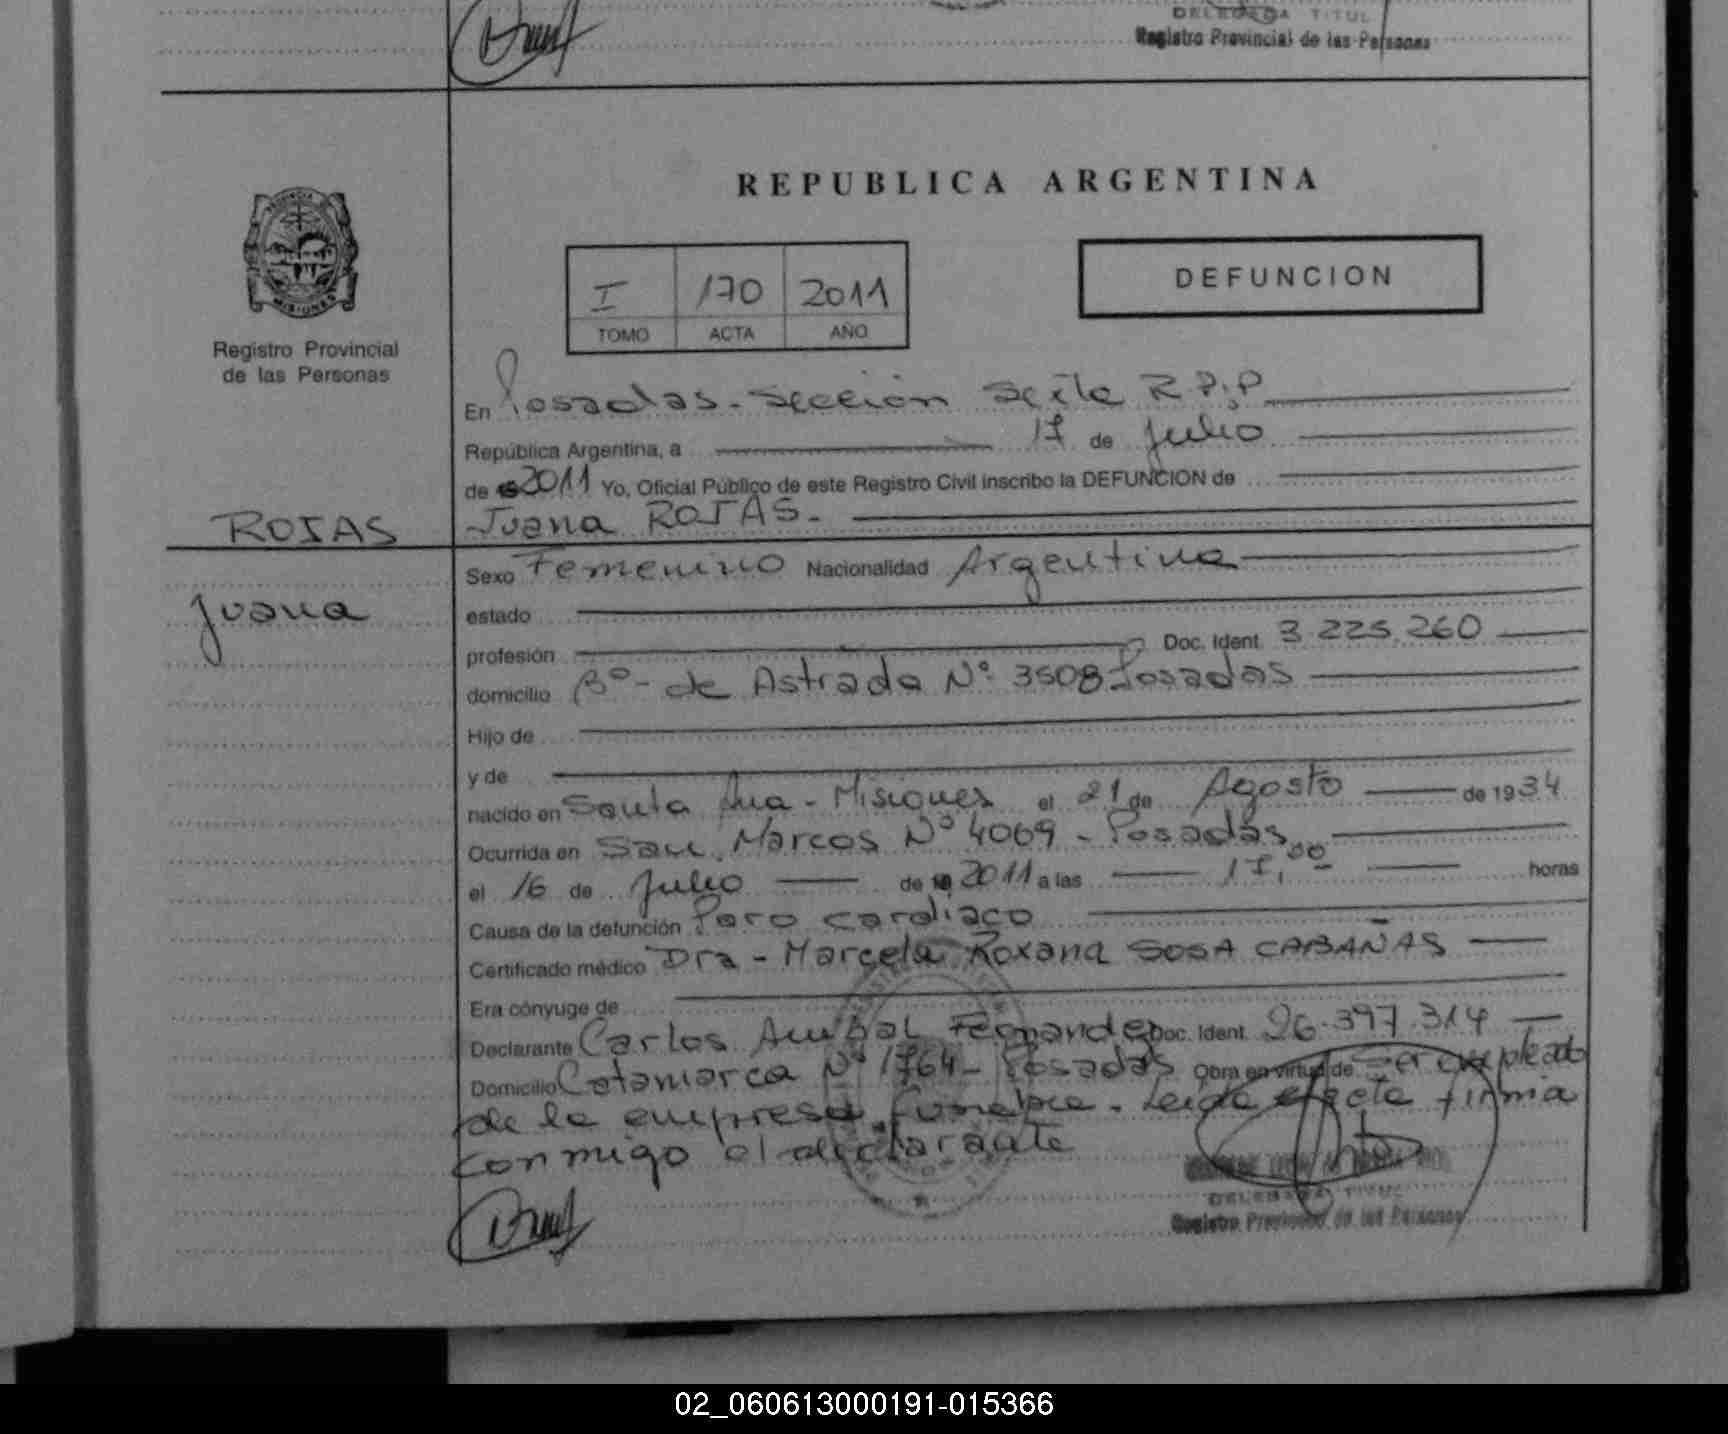 DELEGADA TITUL
Registro Provincial de las Personas
REPUBLICA ARGENTINA
PROVINCIA DE
MISIONES
Registro Provincial
de las Personas
I 170 2011
TOMO ACTA AÑO
DEFUNCION
En Posadas - Sección Sexta R.P.P
República Argentina, a 17 de Julio
de 2011 Yo, Oficial Público de este Registro Civil inscribo la DEFUNCION de
Juana ROJAS.-
ROJAS
Juana
Sexo Femenino Nacionalidad Argentina
estado
profesión Doc. Ident. 3.225.260
domicilio Bº - de Astrada Nº 3508 Posadas
Hijo de
y de
nacido en Santa Ana - Misiones el 21 de Agosto de 1934
Ocurrida en San Marcos Nº 4069 - Posadas
el 16 de Julio de 2011 a las 17,00 horas
Causa de la defunción Paro cardiaco
Certificado médico Dra - Marcela Roxana SOSA CABAÑAS
Era cónyuge de
Declarante Carlos Anibal Fernandez Doc. Ident. 26.397.314
Domicilio Catamarca Nº 1764 - Posadas Obra en virtud de Ser empleado
de la empresa funebre - Leida el acta firma
conmigo el declarante
DELEGADA TITUL
Registro Provincial de las Personas
02_060613000191-015366